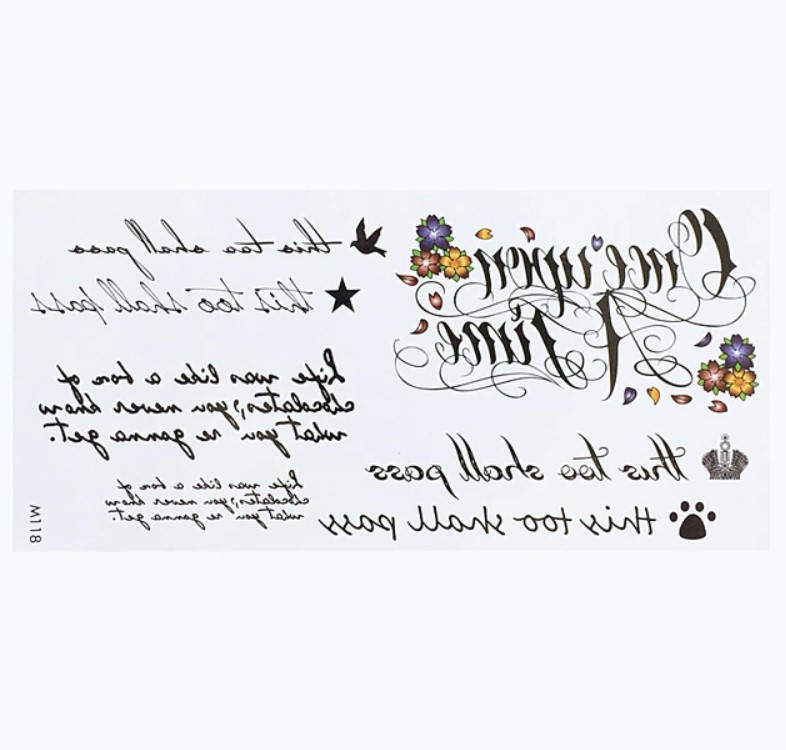 this too shall pass
this too shall pass
Life was like a box of
chocolates, you never know
what you're gonna get.
Life was like a box of
chocolates, you never know
what you're gonna get.
M118
Once upon
A Time
this too shall pass
this too shall pass